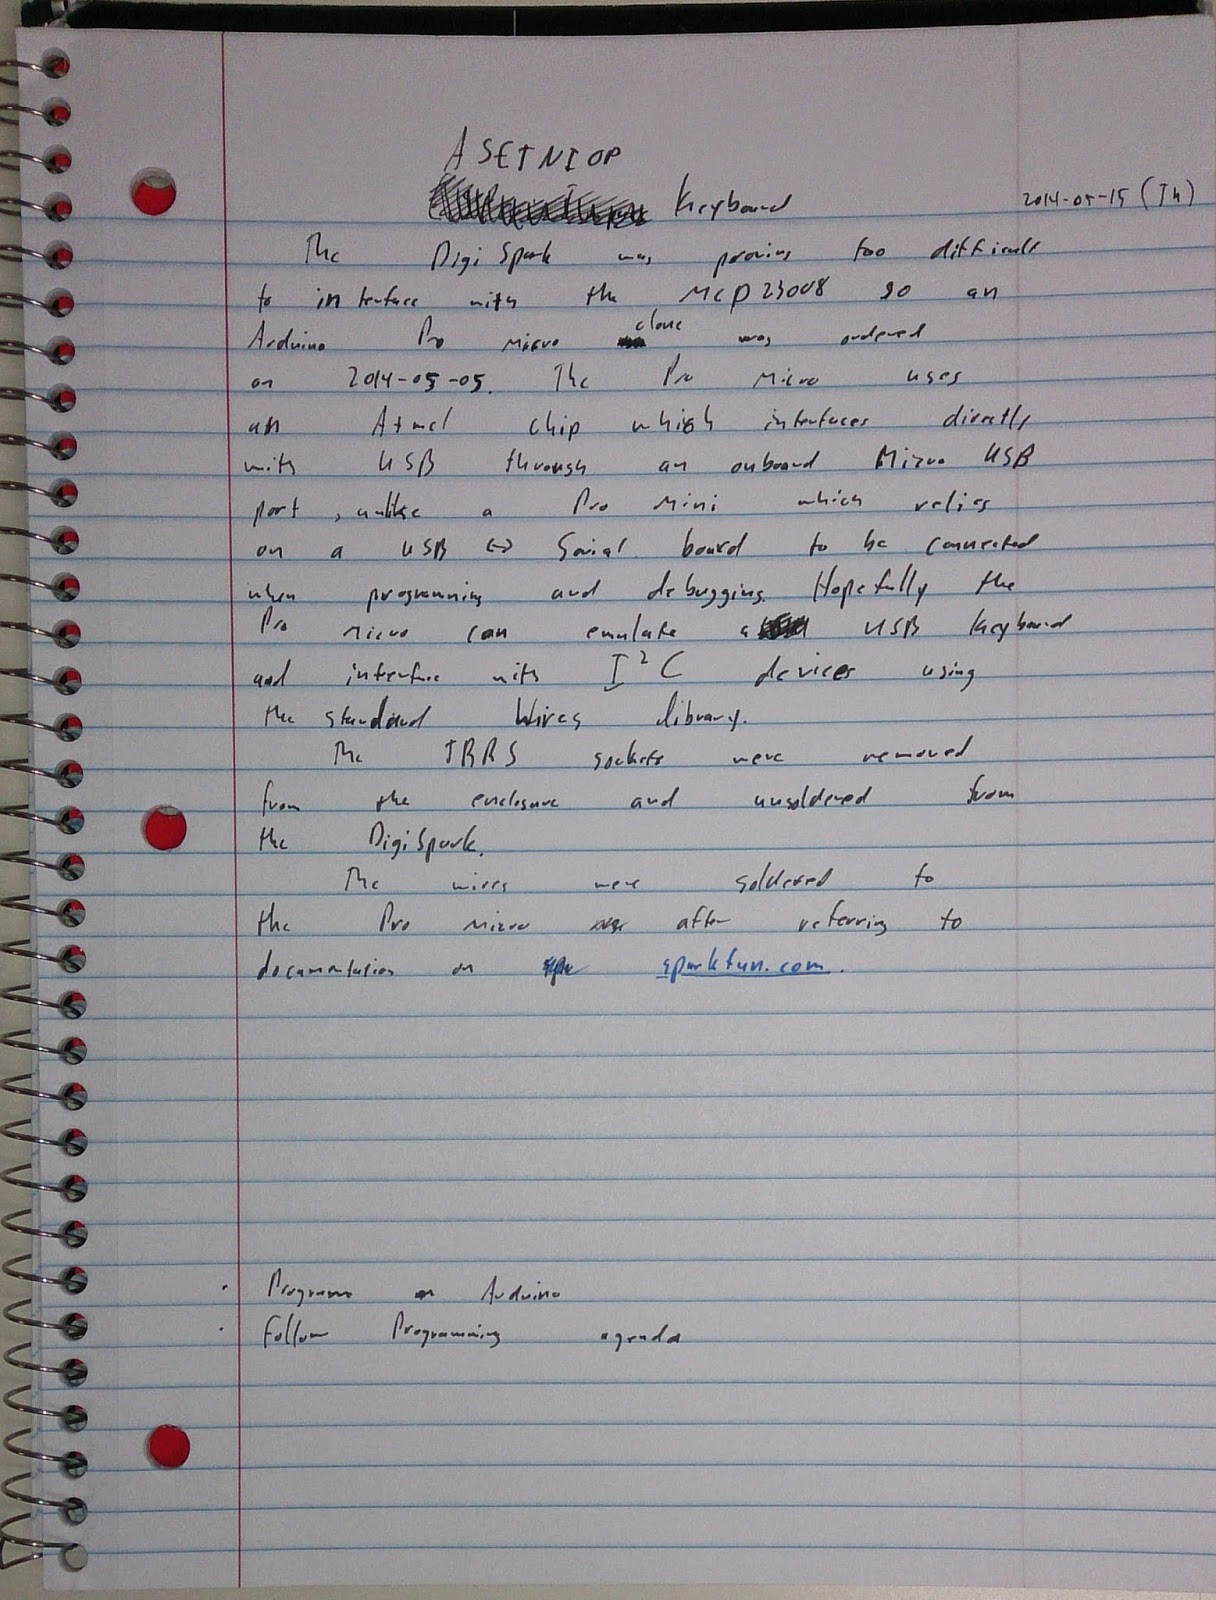 ASETNIOP
Keyboard 2014-05-15 (Th)
The DigiSpark was proving too difficult
to interface with the MCP23008 so an
Arduino Pro Micro clone was ordered
on 2014-05-05. The Pro Micro uses
an Atmel chip which interfaces directly
with USB through an onboard Micro USB
port, unlike a Pro Mini which relies
on a USB <-> Serial board to be connected
when programming and debugging. Hopefully the
Pro Micro can emulate a USB Keyboard
and interface with I²C devices using
the standard Wires library.
The TRRS sockets were removed
from the enclosure and unsoldered from
the DigiSpark.
The wires were soldered to
the Pro Micro after referring to
documentation on sparkfun.com.
· Programs on Arduino
· Follow Programming agenda